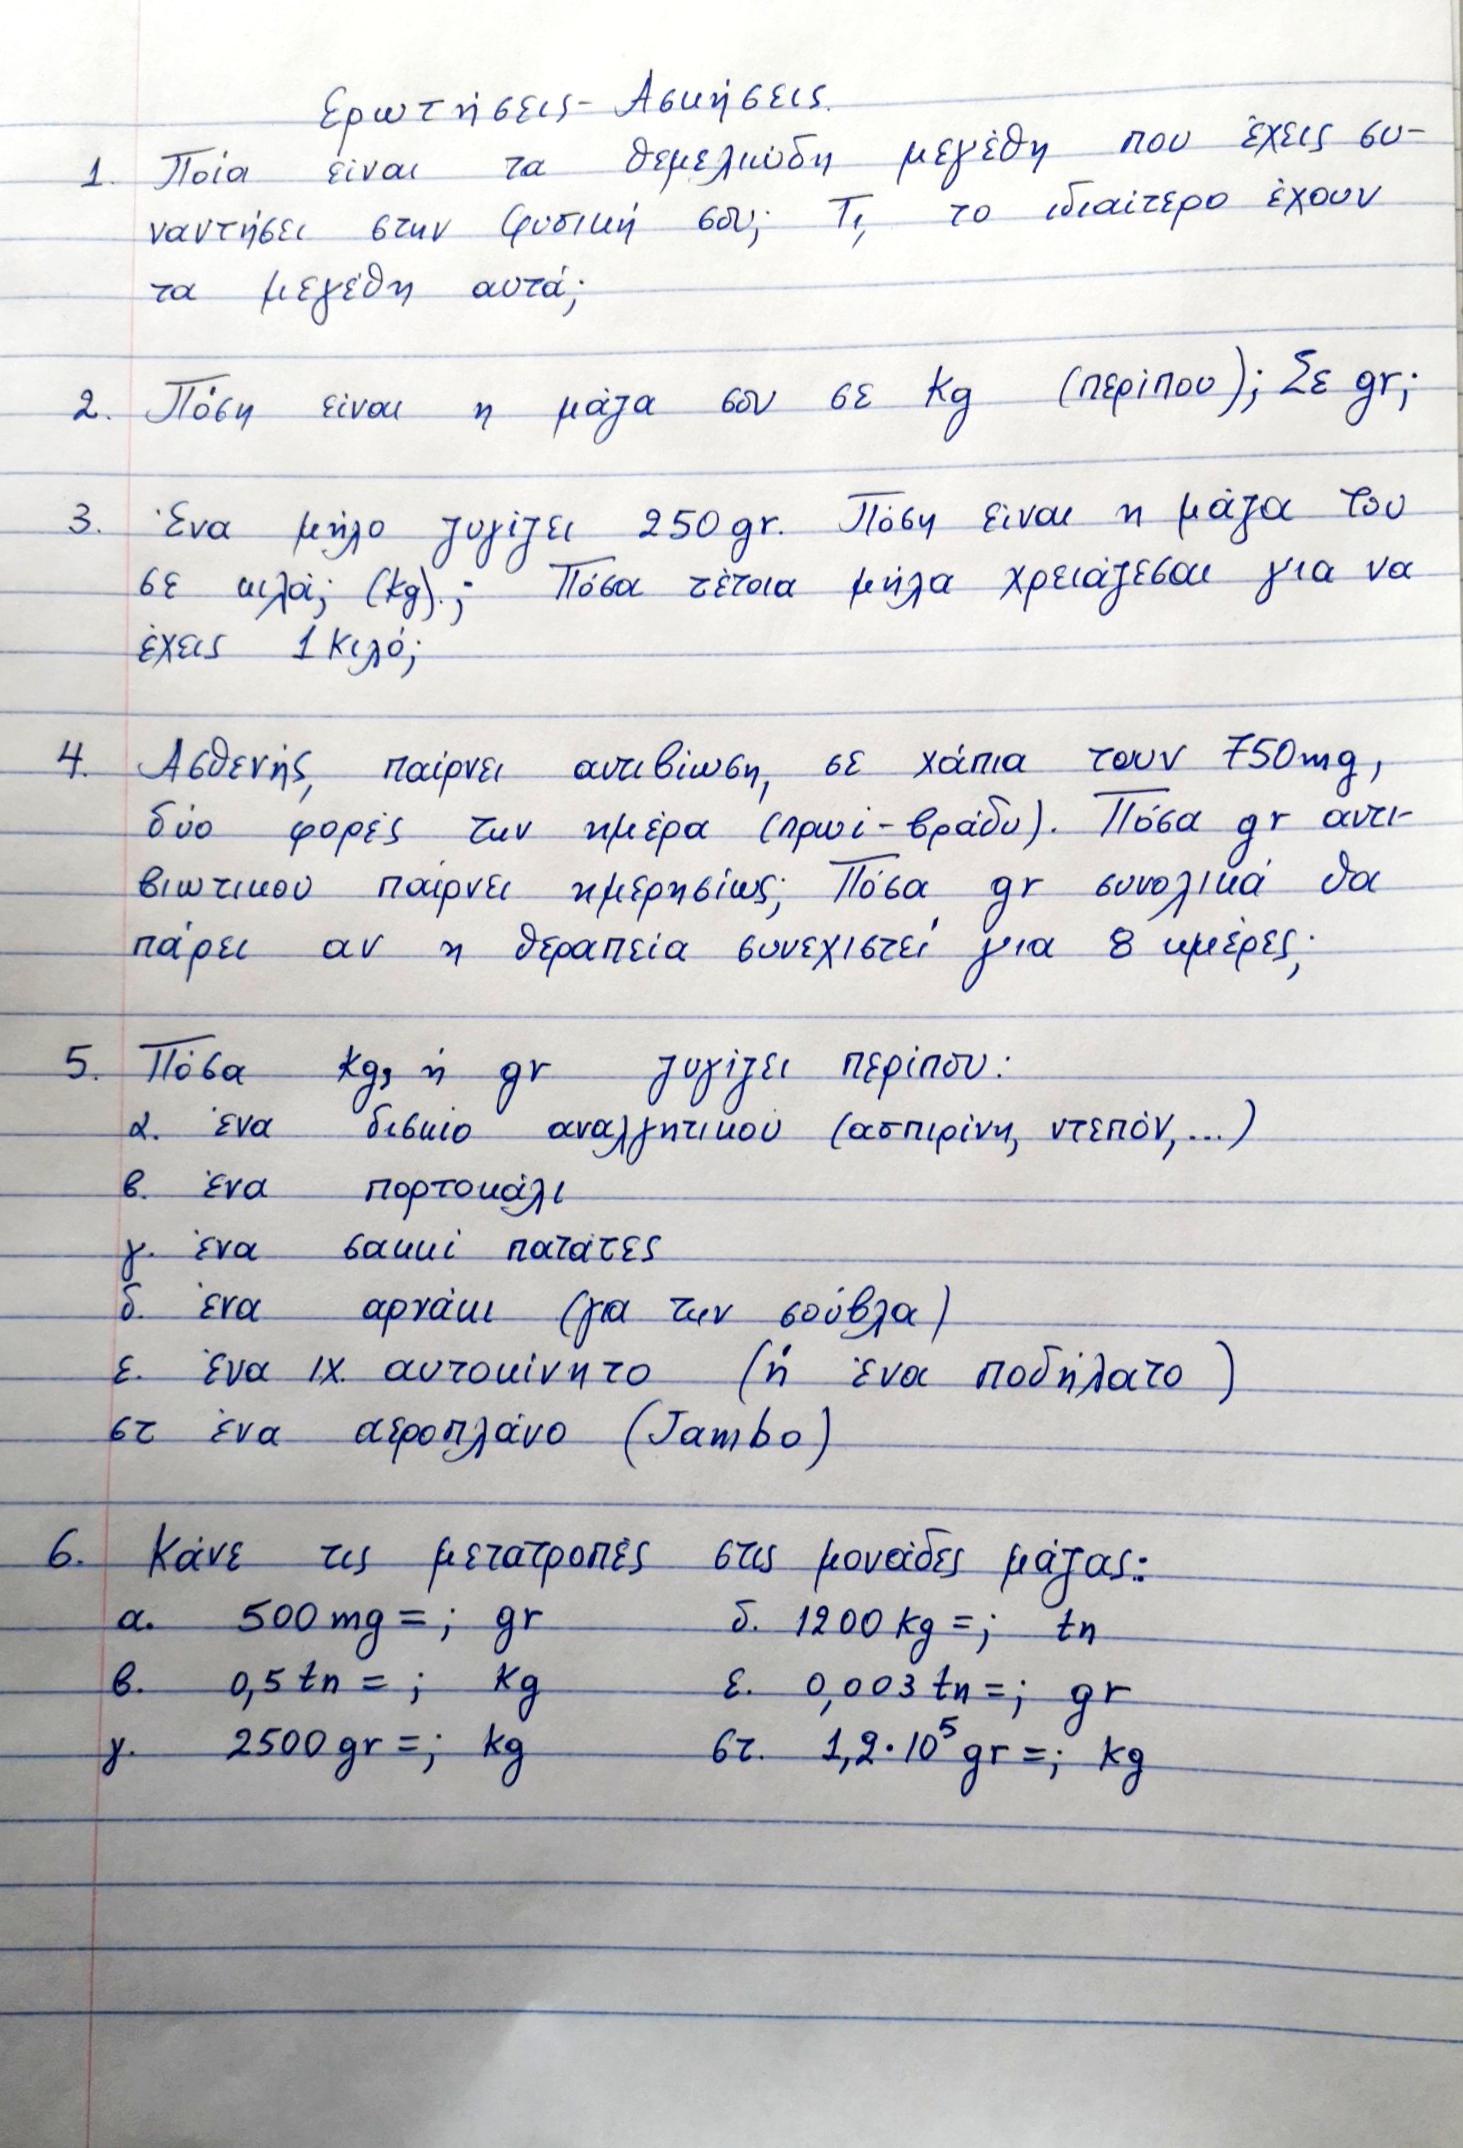 Ερωτήσεις - Ασκήσεις.
1. Ποία είναι τα θεμελιώδη μεγέθη που έχεις συ-
ναντήσει στην φυσική σου; Τι, το ιδιαίτερο έχουν
τα μεγέθη αυτά;
2. Πόση είναι η μάζα σου σε kg (περίπου); Σε gr;
3. Ένα μήλο ζυγίζει 250gr. Πόση είναι η μάζα του
σε κιλά; (kg).; Πόσα τέτοια μήλα χρειάζεσαι για να
έχεις 1 κιλό;
4. Ασθενής, παίρνει αντιβίωση, σε χάπια τουν 750mg,
δύο φορές την ημέρα (πρωί-βράδυ). Πόσα gr αντι-
βιωτικού παίρνει ημερησίως; Πόσα gr συνολικά θα
πάρει αν η θεραπεία συνεχιστεί για 8 ημέρες;
5. Πόσα kg, ή gr ζυγίζει περίπου:
α. ένα δισκίο αναλγητικού (ασπιρίνη, ντεπόν,...)
β. ένα πορτοκάλι
γ. ένα σακκί πατάτες
δ. ένα αρνάκι (για την σούβλα)
ε. ένα ΙΧ. αυτοκίνητο (ή ένα ποδήλατο)
στ ένα αεροπλάνο (Jambo)
6. Κάνε τις μετατροπές στις μονάδες μάζας:
α. 500mg =; gr δ. 1200kg =; tn
β. 0,5tn =; kg ε. 0,003tn =; gr
γ. 2500gr =; kg στ. 1,2·10⁵gr =; kg